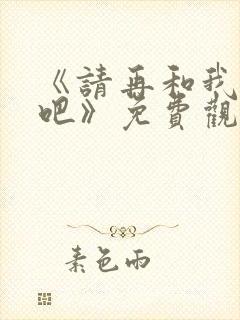 《請再和我
吧》免費觀
素色雨